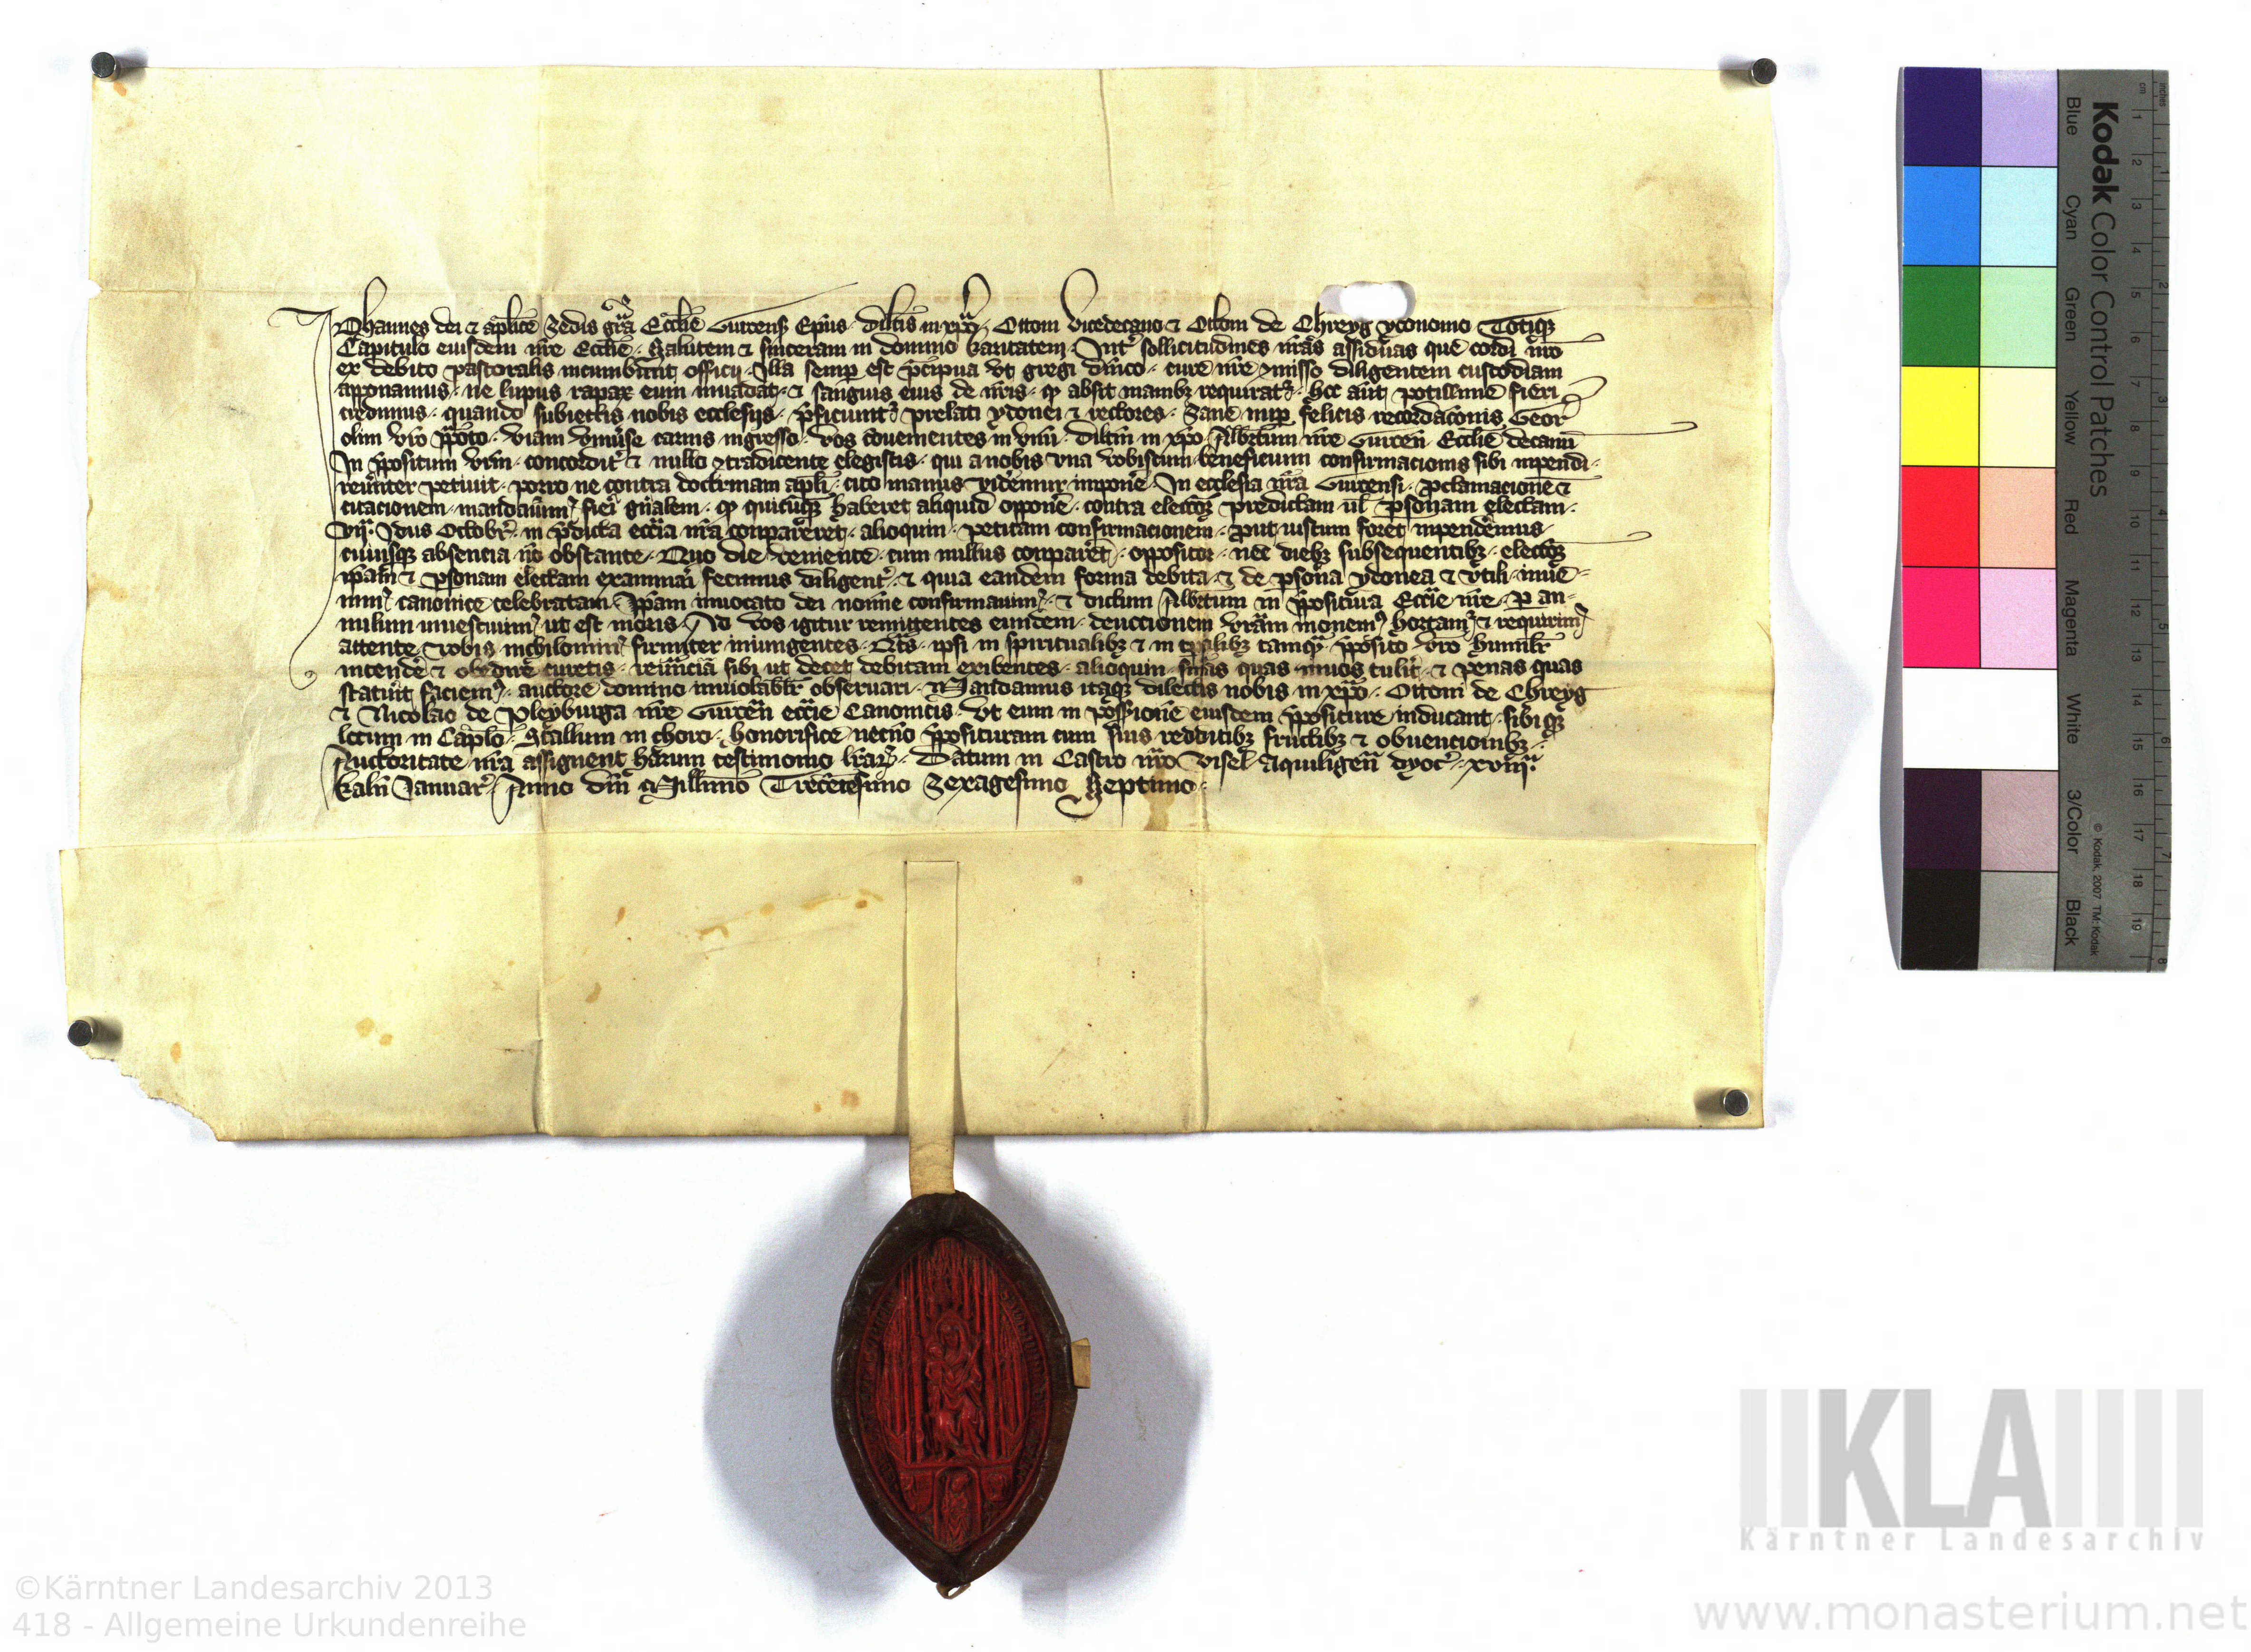 Johannes dei ⁊ aplice Sedis gra Ecclie Gurcens Epus · dilcis in xpo · Ottoni vicedecano ⁊ Ottoni de Chreyg yconomo Totiqꝫ
Capitulo eiusdem nre Ecclie · Salutem ⁊ sinceram in domino karitatem · Int sollicitudines nras assiduas que cordi nro
ex debito pastoralis incumbunt officij · Illa semp est pcipua vt gregi dnico · cure nre ꝯmisso diligentem custodiam
apponamus · ne lupus rapax eum inuadat · ⁊ sanguis eius de nris · qd absit manibꝫ requirat · hoc aut potissime fieri
credimus · quando subiectis nobis ecclesijs · pficiunt prelati ydonei ⁊ rectores · Sane nup felicis recordaconis Geor
olim vro ppoto · viam vniuse carnis ingresso · vos conuenientes in vnu · dilcm in xpo Albtum nre Gurcen Ecclie decanu
In ppositum vrm · concordit ⁊ nullo ꝯtradicente elegistis · qui a nobis vna vobiscum beneficium confirmacionis sibi inpendi ·
reuenter petiuit · porro ne contra doctrinam apli · cito manus videmur impone · In ecclesia nra Gurcensi · pclamacione ⁊
citacionem · mandauim fieri gnalem · qd quicuqꝫ haberet aliquid opponе · contra electoꝫ predictam ul psonam electam ·
viij Idus Octobr · in pdicta eccia nra conpareret · alioquin · petitam confirmacionem · put iustum foret inpendemus ·
cuiusqꝫ absencia no obstante · Quo die veniente · cum nullus conparet · oppositor · nec diebꝫ subsequentibꝫ · electoꝫ
ipam ⁊ psonam electam examinari fecimus diligent · ⁊ quia eandem forma debita · ⁊ de psona ydonea ⁊ vtili · inue-
nim canonice celebratam · Ipam inuocato dei nomine confirmauim · ⁊ dictum Albtum in ppositura Eccie nre · p an-
nulum inuestiuim ut est moris · Ad vos igitur remittentes eundem · deuocionem vram monem hortam ⁊ requirim
attente vobis nichilomin firmiter iniungentes · Qts · ipsi in spiritualibꝫ ⁊ in tpalibꝫ tamqꝫ pposito vro humilr
intende ⁊ obedire curetis · reuencia sibi ut decet debitam exibentes · alioquin snias quas inuos tulit · ⁊ penas quas
statuit faciem · auctore domino inuiolablr obseruari · Mandamus itaqꝫ dilectis nobis in xpo · Ottoni de Chreyg
⁊ Nicolao de Pleyburga nre Gurcen eccie Canonicis · vt eum in possione eiusdem ppositure inducant · sibiqꝫ
locum in Caplo · Stallum in choro · honorifice necno pposituram cum suis redditibꝫ fructibꝫ ⁊ obuencionibꝫ ·
Auctoritate nra assignent harum testimonio lraꝝ · Datum in Castro nro visel Aquiligen dyoc · xviij
kaln Januar · Anno dni Millimo Trecentesimo Sexagesimo Septimo ·
Kodak Color Control Patches
Blue Cyan Green Yellow Red Magenta White 3/Color Black
© Kodak, 2007 TM: Kodak
inches 1 2 3 4 5 6 7 8
cm 1 2 3 4 5 6 7 8 9 10 11 12 13 14 15 16 17 18 19
KLA
Kärntner Landesarchiv
www.monasterium.net
©Kärntner Landesarchiv 2013
418 - Allgemeine Urkundenreihe